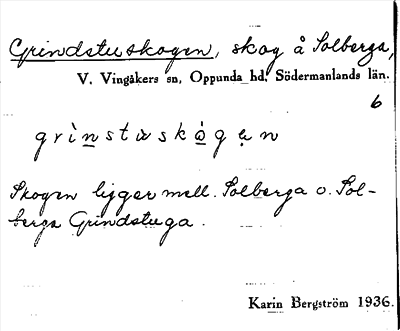 Grindstuskogen, skog å Solberga,
V. Vingåkers sn, Oppunda hd, Södermanlands län.
6
grìnstùskògen
Skogen ligger mell. Solberga o. Sol-
berga Grindstuga.
Karin Bergström 1936.